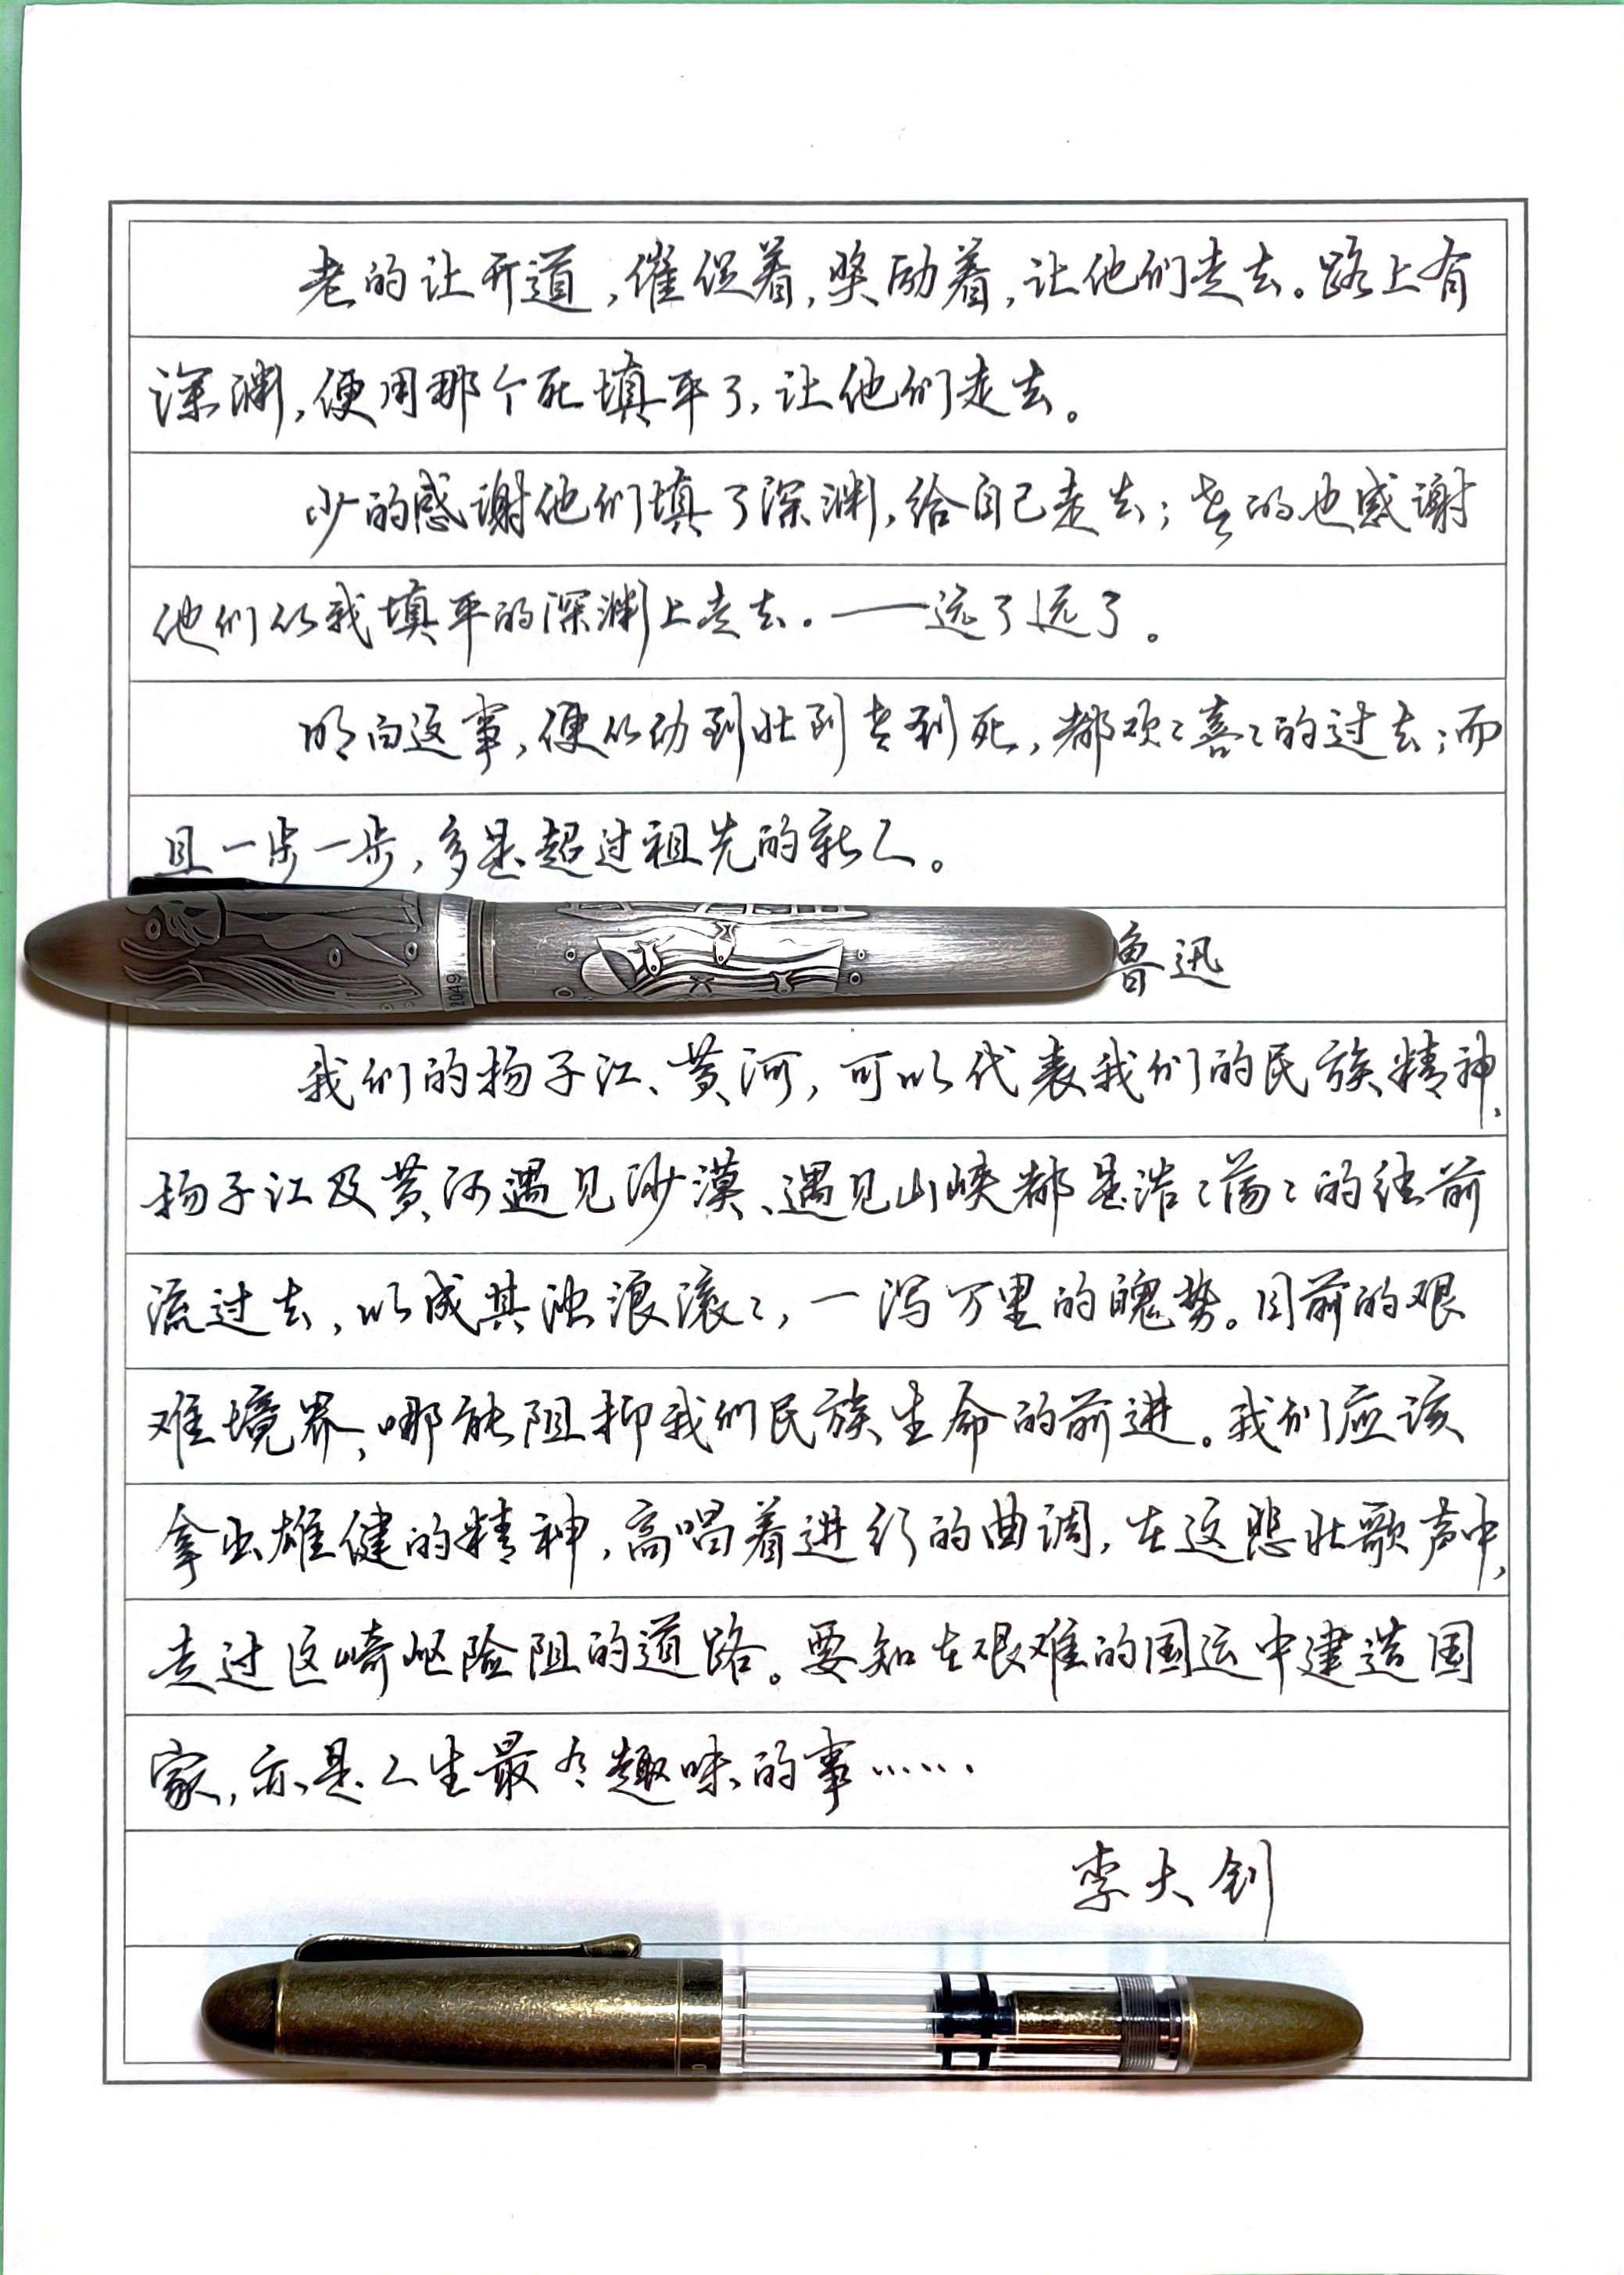 老的让开道,催促着,奖励着,让他们走去。路上有
深渊,便用那个死填平了,让他们走去。
少的感谢他们填了深渊,给自己走去;老的也感谢
他们从我填平的深渊上走去。——远了远了。
明白这事,便从幼到壮到老到死,都欢々喜々的过去;而
且一步一步,多是超过祖先的新人。
鲁迅
2049
我们的扬子江、黄河,可以代表我们的民族精神,
扬子江及黄河遇见沙漠、遇见山峡都是浩々荡々的往前
流过去,以成其浊浪滚々,一泻万里的魄势。目前的艰
难境界,哪能阻抑我们民族生命的前进。我们应该
拿出雄健的精神,高唱着进行的曲调,在这悲壮歌声中,
走过这崎岖险阻的道路。要知在艰难的国运中建造国
家,亦是人生最有趣味的事……
李大钊